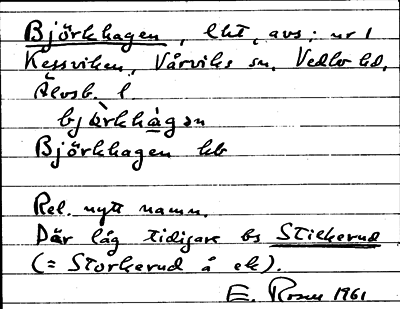 Björkhagen, lht, avs. nr 1
Kessviken, Vårviks sn, Vedbo hd,
Älvsb. l.
bjö̀rkhà̱gən
Björkhagen hb
Rel. nytt namn.
Där låg tidigare bs Stickerud
(= Storkerud å ek).
E. Rosen 1961